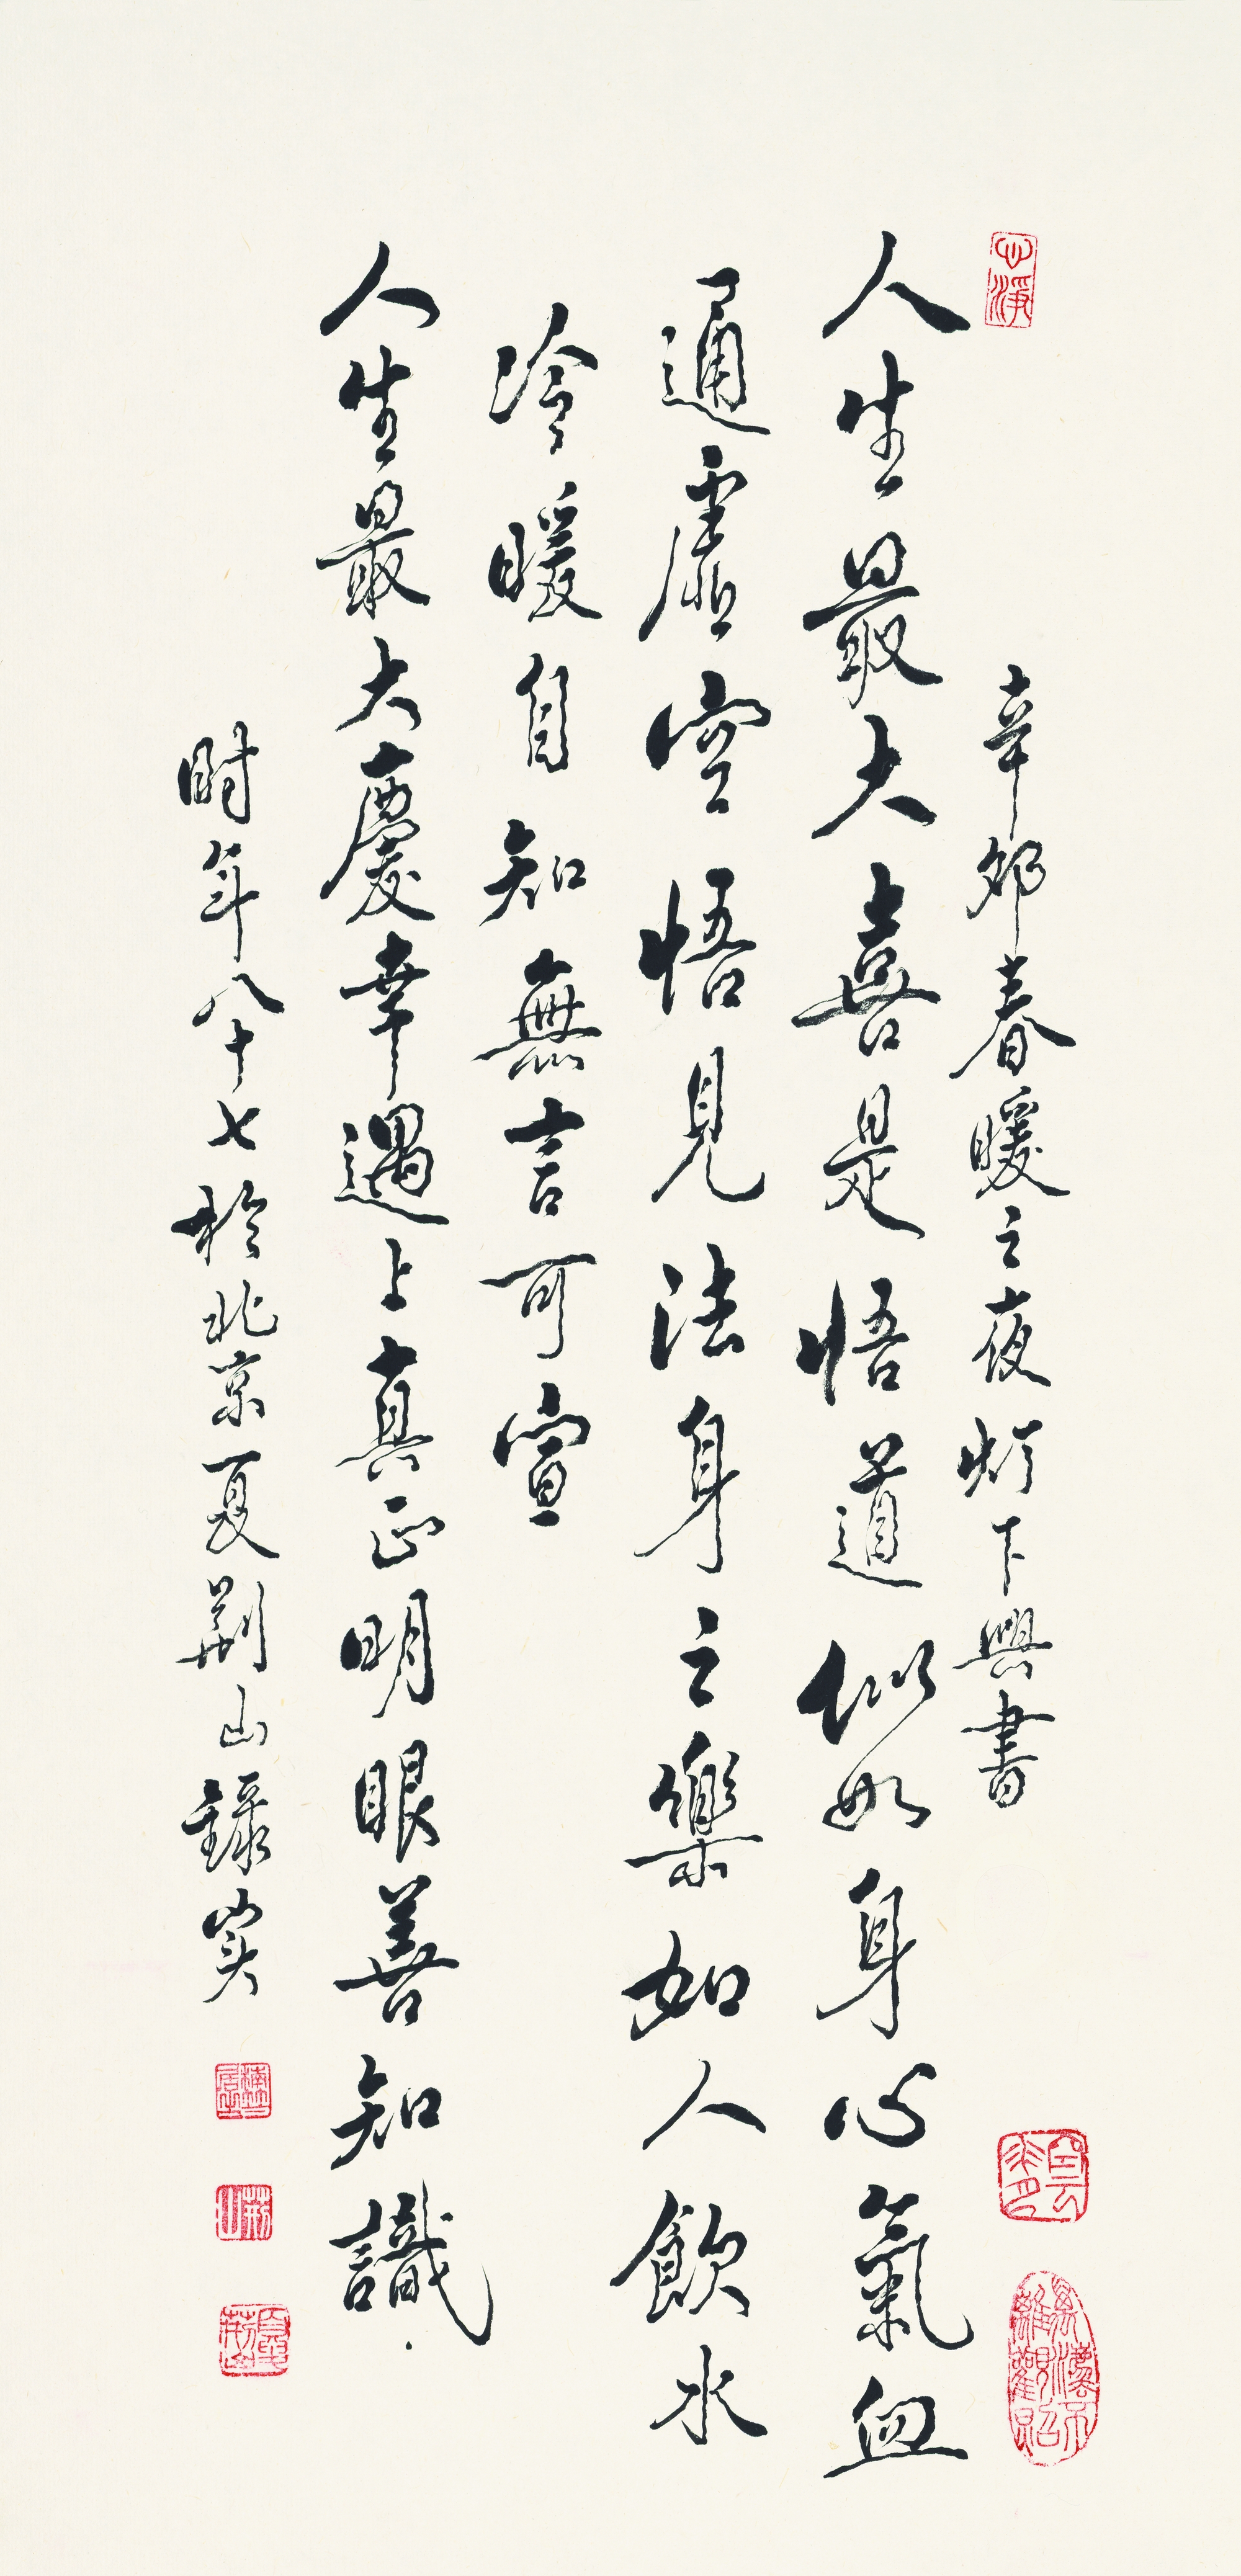 心淨
辛卯春暖之夜灯下興書
人生最大喜是悟道似如身心氣血
通虛空悟見法身之樂如人飲水
冷暖自知無言可宣
人生最大慶幸遇上真正明眼善知識
時年八十七於北京夏荆山錄实
萬法不離觀照
荊山
夏荊山